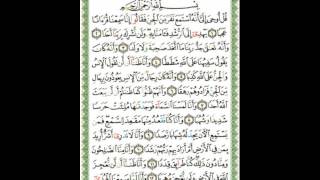 بِسْمِ اللَّهِ الرَّحْمَٰنِ الرَّحِيمِ
قُلْ أُوحِيَ إِلَيَّ أَنَّهُ ٱسْتَمَعَ نَفَرٌ مِّنَ ٱلْجِنِّ فَقَالُوٓا۟ إِنَّا سَمِعْنَا قُرْءَانًا
عَجَبًا ١ يَهْدِىٓ إِلَى ٱلرُّشْدِ فَـَٔامَنَّا بِهِۦ وَلَن نُّشْرِكَ بِرَبِّنَآ أَحَدًا
٢ وَأَنَّهُۥ تَعَٰلَىٰ جَدُّ رَبِّنَا مَا ٱتَّخَذَ صَٰحِبَةً وَلَا وَلَدًا ٣ وَأَنَّهُۥ كَانَ
يَقُولُ سَفِيهُنَا عَلَى ٱللَّهِ شَطَطًا ٤ وَأَنَّا ظَنَنَّآ أَن لَّن تَقُولَ ٱلْإِنسُ
وَٱلْجِنُّ عَلَى ٱللَّهِ كَذِبًا ٥ وَأَنَّهُۥ كَانَ رِجَالٌ مِّنَ ٱلْإِنسِ يَعُوذُونَ بِرِجَالٍ
مِّنَ ٱلْجِنِّ فَزَادُوهُمْ رَهَقًا ٦ وَأَنَّهُمْ ظَنُّوا۟ كَمَا ظَنَنتُمْ أَن لَّن يَبْعَثَ
ٱللَّهُ أَحَدًا ٧ وَأَنَّا لَمَسْنَا ٱلسَّمَآءَ فَوَجَدْنَٰهَا مُلِئَتْ حَرَسًا
شَدِيدًا وَشُهُبًا ٨ وَأَنَّا كُنَّا نَقْعُدُ مِنْهَا مَقَٰعِدَ لِلسَّمْعِ فَمَن
يَسْتَمِعِ ٱلْـَٔانَ يَجِدْ لَهُۥ شِهَابًا رَّصَدًا ٩ وَأَنَّا لَا نَدْرِىٓ أَشَرٌّ أُرِيدَ
بِمَن فِى ٱلْأَرْضِ أَمْ أَرَادَ بِهِمْ رَبُّهُمْ رَشَدًا ١٠ وَأَنَّا مِنَّا ٱلصَّٰلِحُونَ
وَمِنَّا دُونَ ذَٰلِكَ كُنَّا طَرَآئِقَ قِدَدًا ١١ وَأَنَّا ظَنَنَّآ أَن لَّن نُّعْجِزَ
ٱللَّهَ فِى ٱلْأَرْضِ وَلَن نُّعْجِزَهُۥ هَرَبًا ١٢ وَأَنَّا لَمَّا سَمِعْنَا ٱلْهُدَىٰٓ